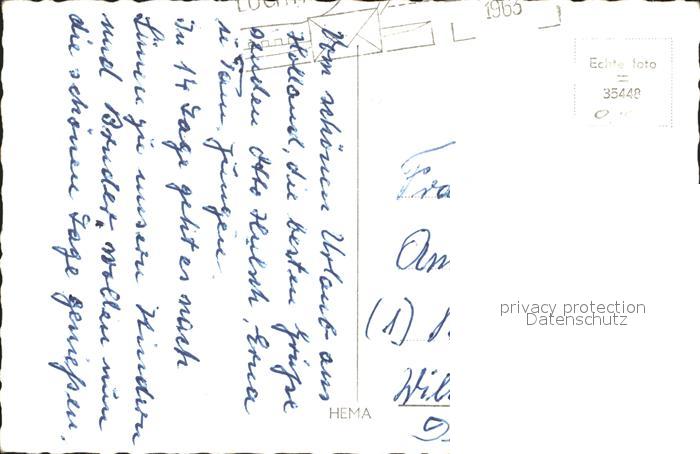 1963
Echte foto
=
35448
Vom schönen Urlaub aus
Holland, die besten Grüße
senden Otto Hülsch, Erna
u.
In 14 Tage geht es nach
zu unsern Kindern
und Bruder, wollen nun
die schönen Tage genießen.
Fra
Am
(1)
Wil
HEMA
privacy protection
Datenschutz